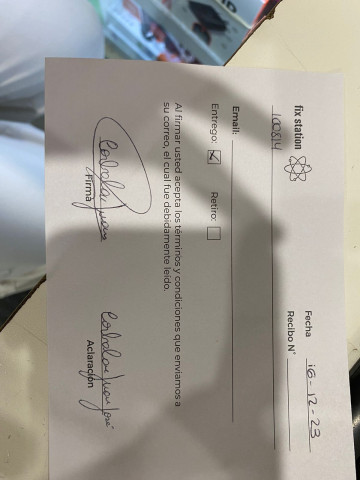 fix station
Fecha 16-12-23
Recibo N°
100814
Email:
Entrego: Retiro:
Al firmar usted acepta los términos y condiciones que enviamos a
su correo, el cual fue debidamente leído.
Firma
Juan José
Aclaración